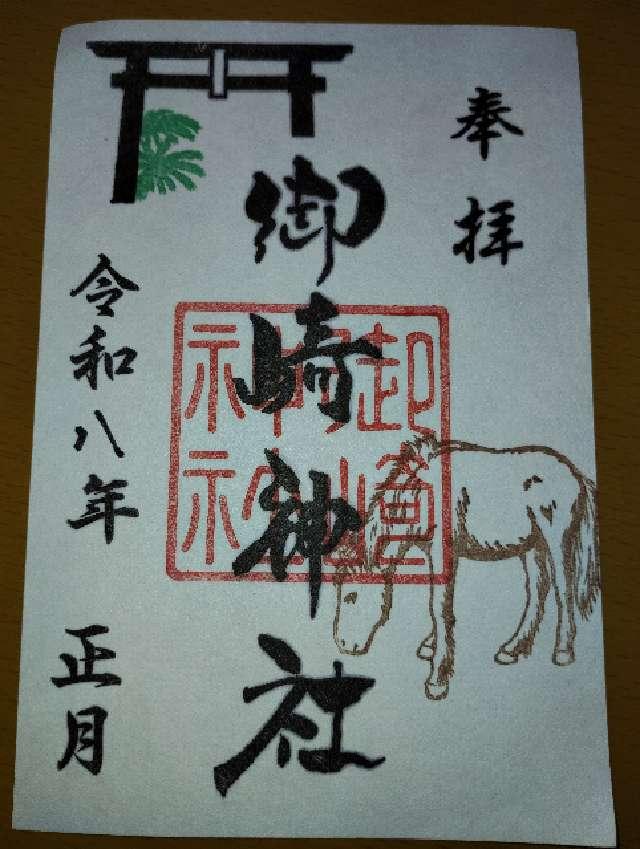 奉拝
御崎神社
令和八年 正月